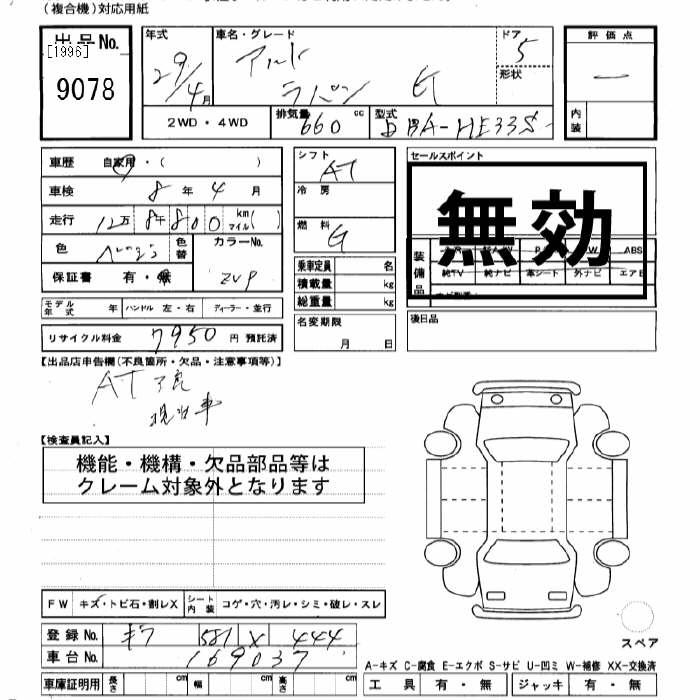 (複合機)対応用紙
出品No.
[1996]
9078
年式 29/4月
車名・グレード アルト ラパン G
ドア 5
形状
評価点 一
内装
2WD・4WD
排気量 660 cc
型式 DBA-HE33S-
車歴 自家用・( )
車検 8年4月
走行 12万8千800 km マイル( )
色
色替
カラーNo. ZVP
保証書 有・無
モデル年式 年 ハンドル 左・右 ディーラー・並行
リサイクル料金 7950 円 預託済
シフト AT
冷房
燃料 G
乗車定員 名
積載量 kg
総重量 kg
名変期限 月 日
セールスポイント
無効
装備品
ABS
純TV 純ナビ 革シート 外ナビ エアB
後日品
【出品店申告欄(不良箇所・欠品・注意事項等)】
AT不良
現状車
【検査員記入】
機能・機構・欠品部品等は
クレーム対象外となります
FW キズ・トビ石・割レX シート内装 コゲ・穴・汚レ・シミ・破レ・スレ
登録No. 581 X 444
車台No. 169037
車庫証明用 長さ cm 幅 cm 高さ cm
スペア
A-キズ C-腐食 E-エクボ S-サビ U-凹ミ W-補修 XX-交換済
工具 有・無 ジャッキ 有・無